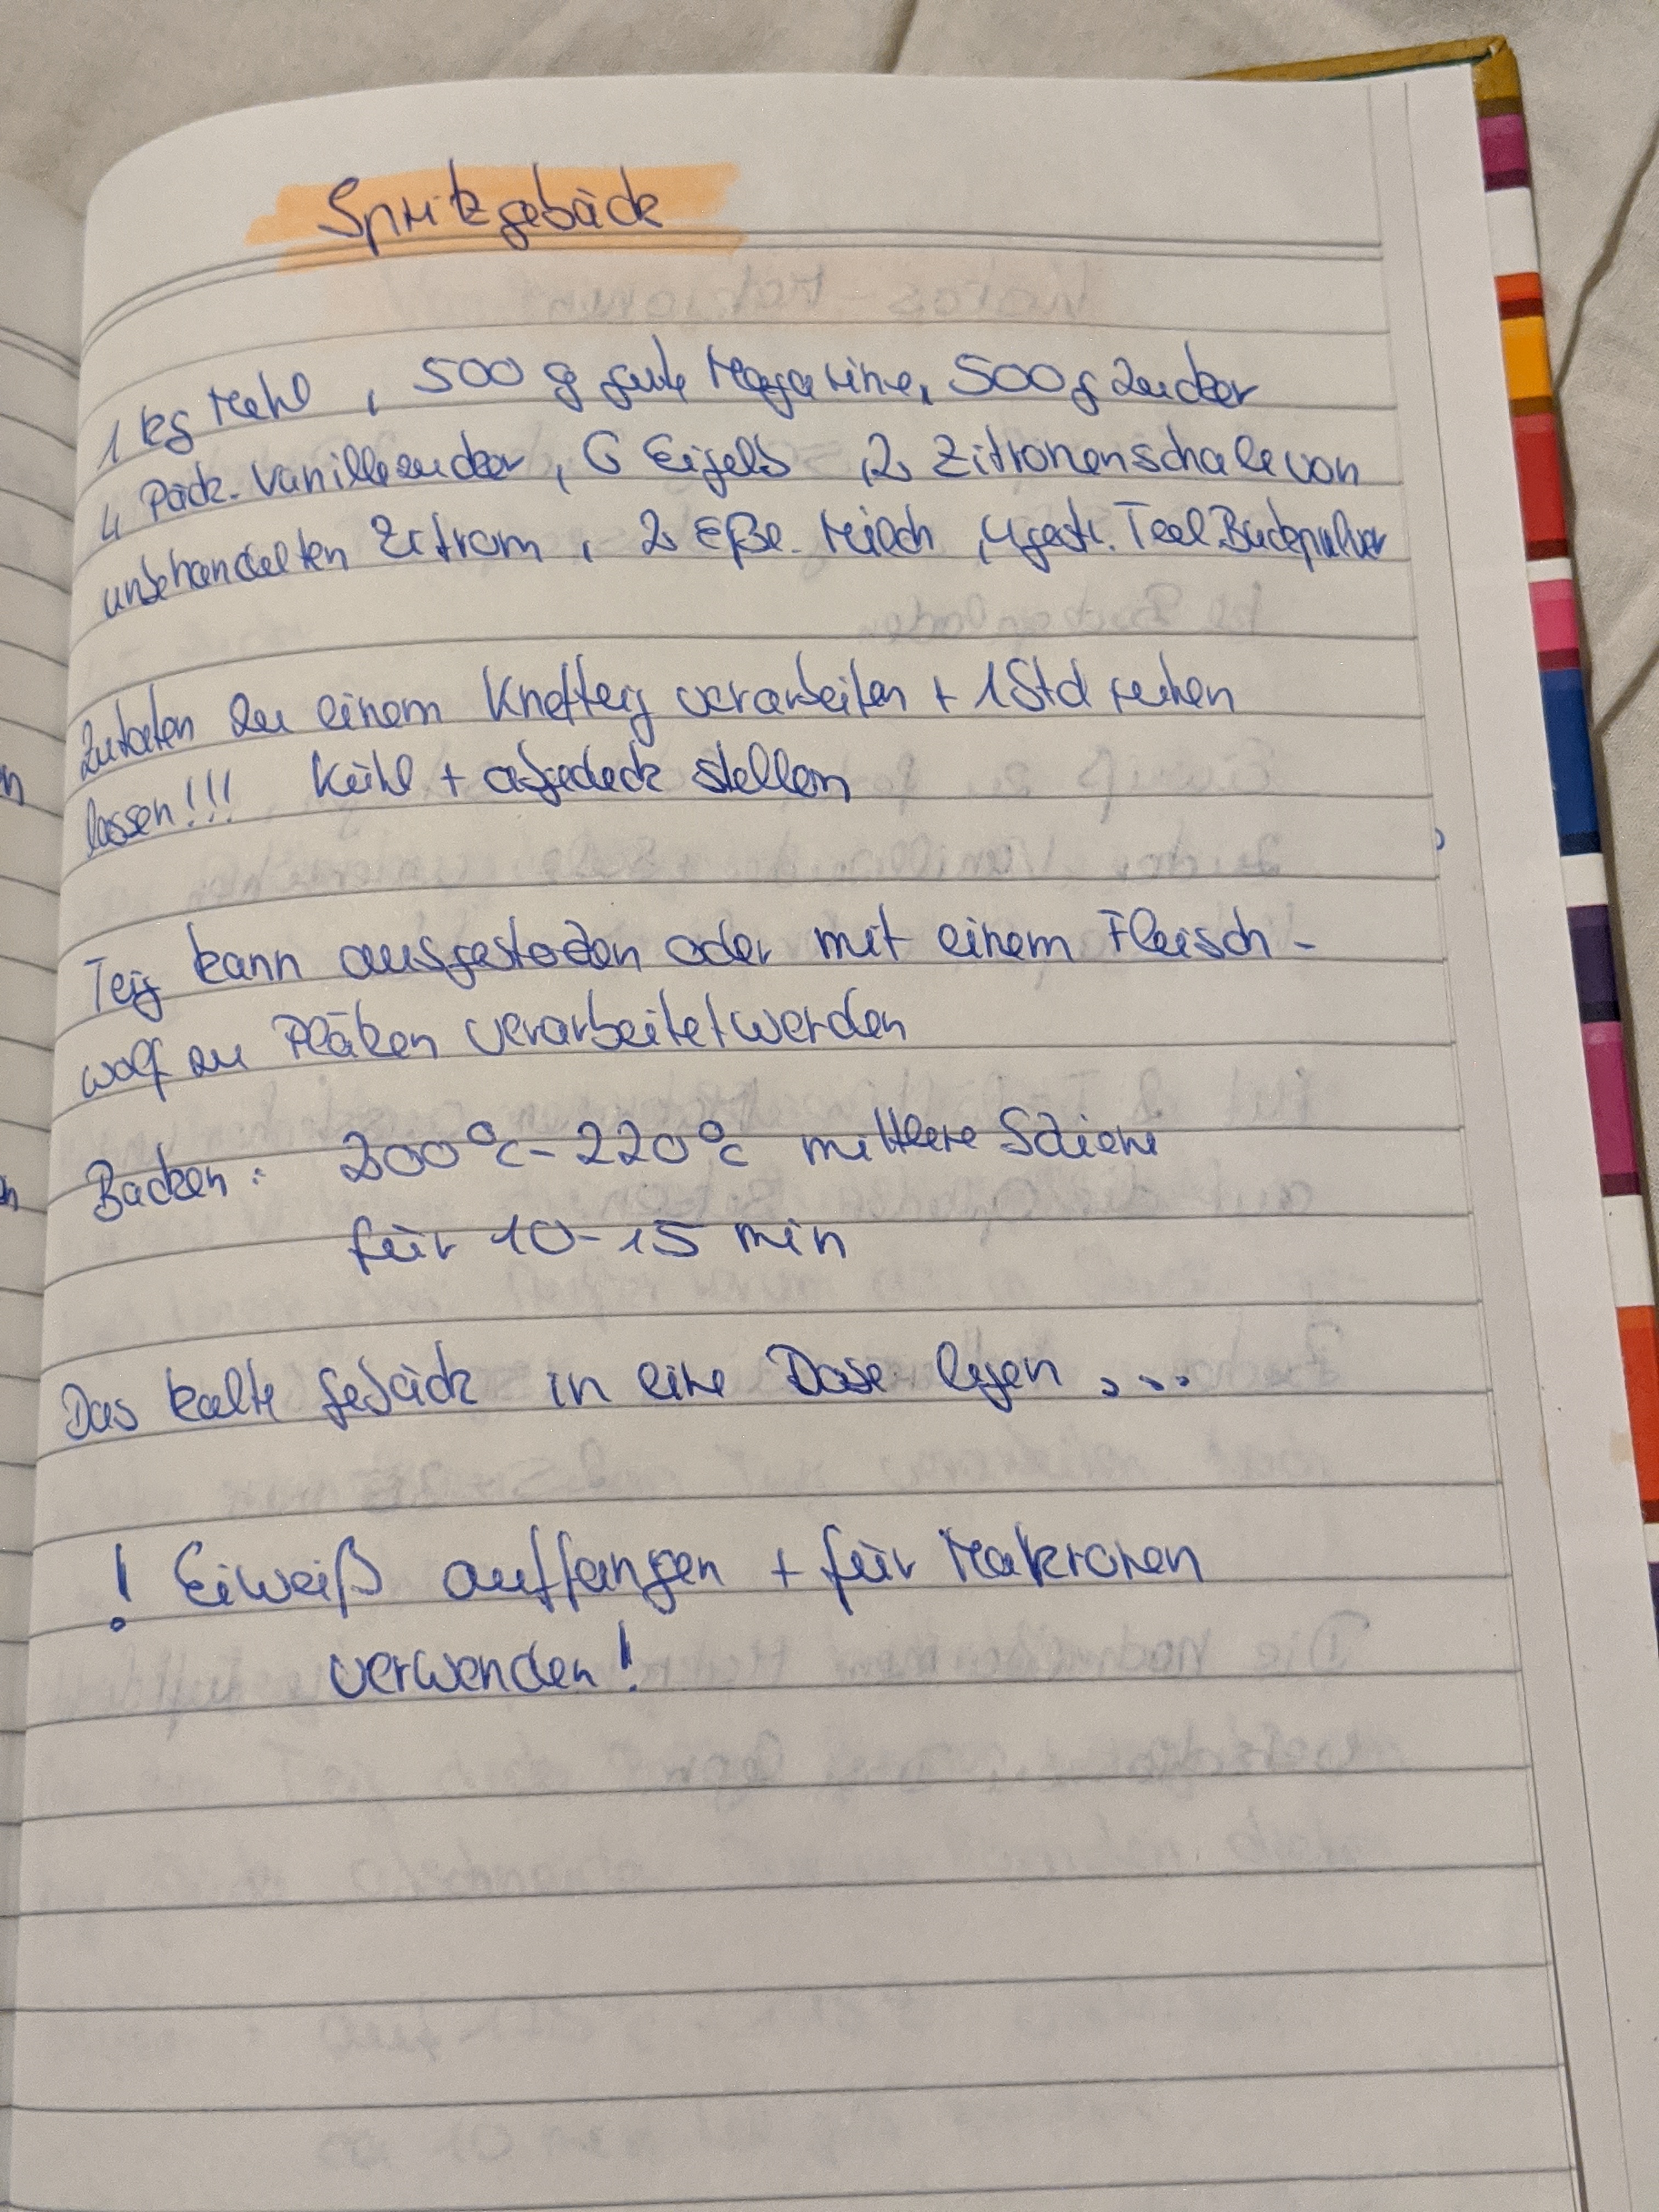 Spritzgebäck
1 kg Mehl, 500 g gute Magarine, 500g Zucker
4 Päck. Vanillezucker, 6 Eigelb, 2 Zitronenschale von
unbehandelten Zitronen, 2 Eßl. Milch, 4 gestr. Teel. Backpulver
Zutaten zu einem Knetteig verarbeiten + 1 Std ruhen
lassen!!! Kühl + abgedeck stellen
Teig kann ausgestochen oder mit einem Fleisch-
wolf zu Pläzen verarbeitet werden
Backen: 200°C - 220°C mittlere Schiene
für 10-15 min
Das kalte Gebäck in eine Dose legen ...
! Eiweiß auffangen + für Makronen
verwenden!